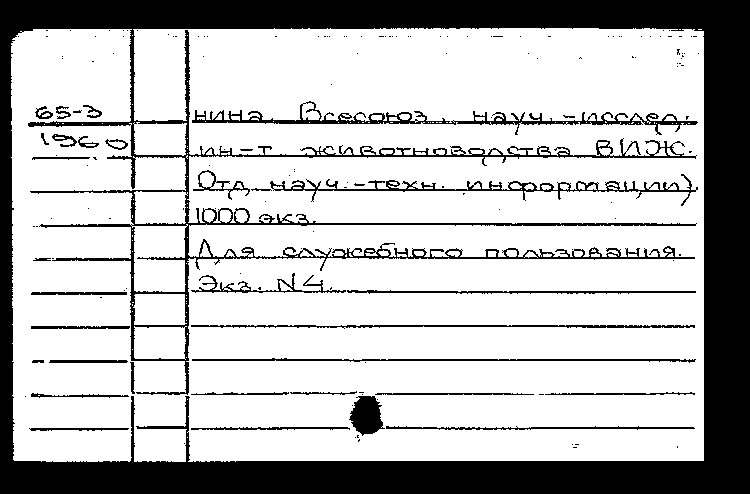 65-3 нина. Всесоюз. науч.-исслед.
1960 ин-т животноводства ВИЖ.
Отд. науч.-техн. информации).
1000 экз.
Для служебного пользования.
Экз. N4.